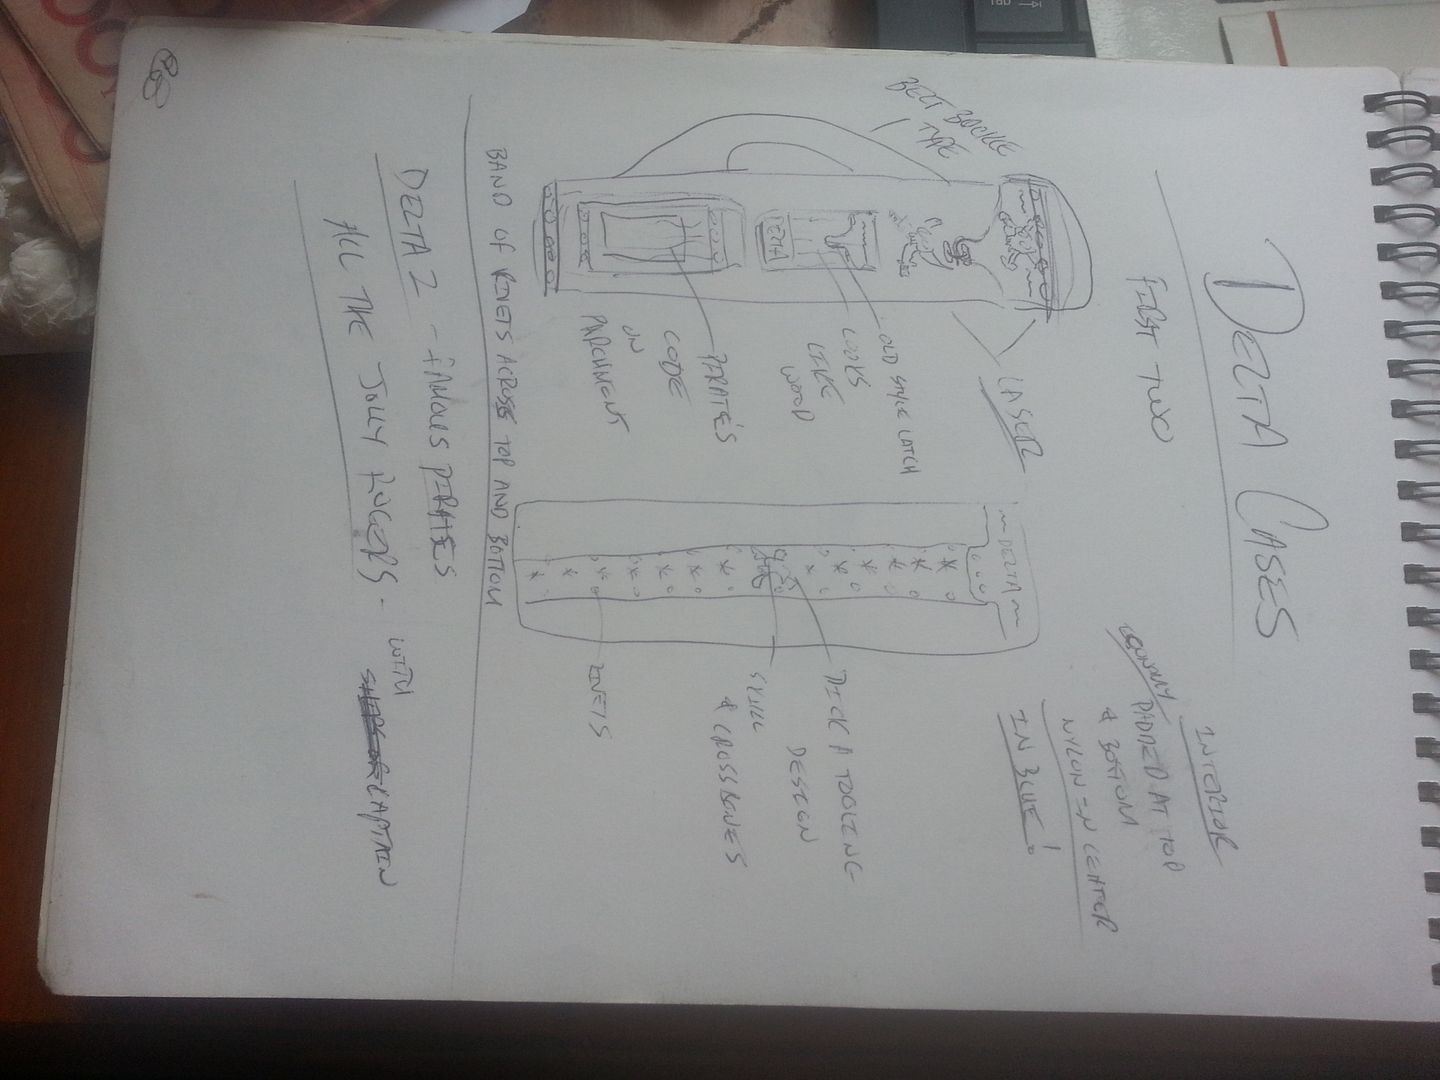 DELTA CASES
FIRST TWO
INTERIOR
PADDED AT TOP
& BOTTOM
NYLON IN CENTER
IN BLUE!
BELT BUCKLE
TYPE
LASER
OLD STYLE LATCH
LOOKS
LIKE
WOOD
PIRATE'S
CODE
ON
PARCHMENT
DELTA
~ DELTA ~
DICK A TOOLING
DESIGN
SKULL
& CROSSBONES
RIVETS
BAND OF RIVETS ACROSS TOP AND BOTTOM
DELTA 2 - FAMOUS PIRATES
ALL THE JOLLY ROGERS - WITH
CAPTAIN